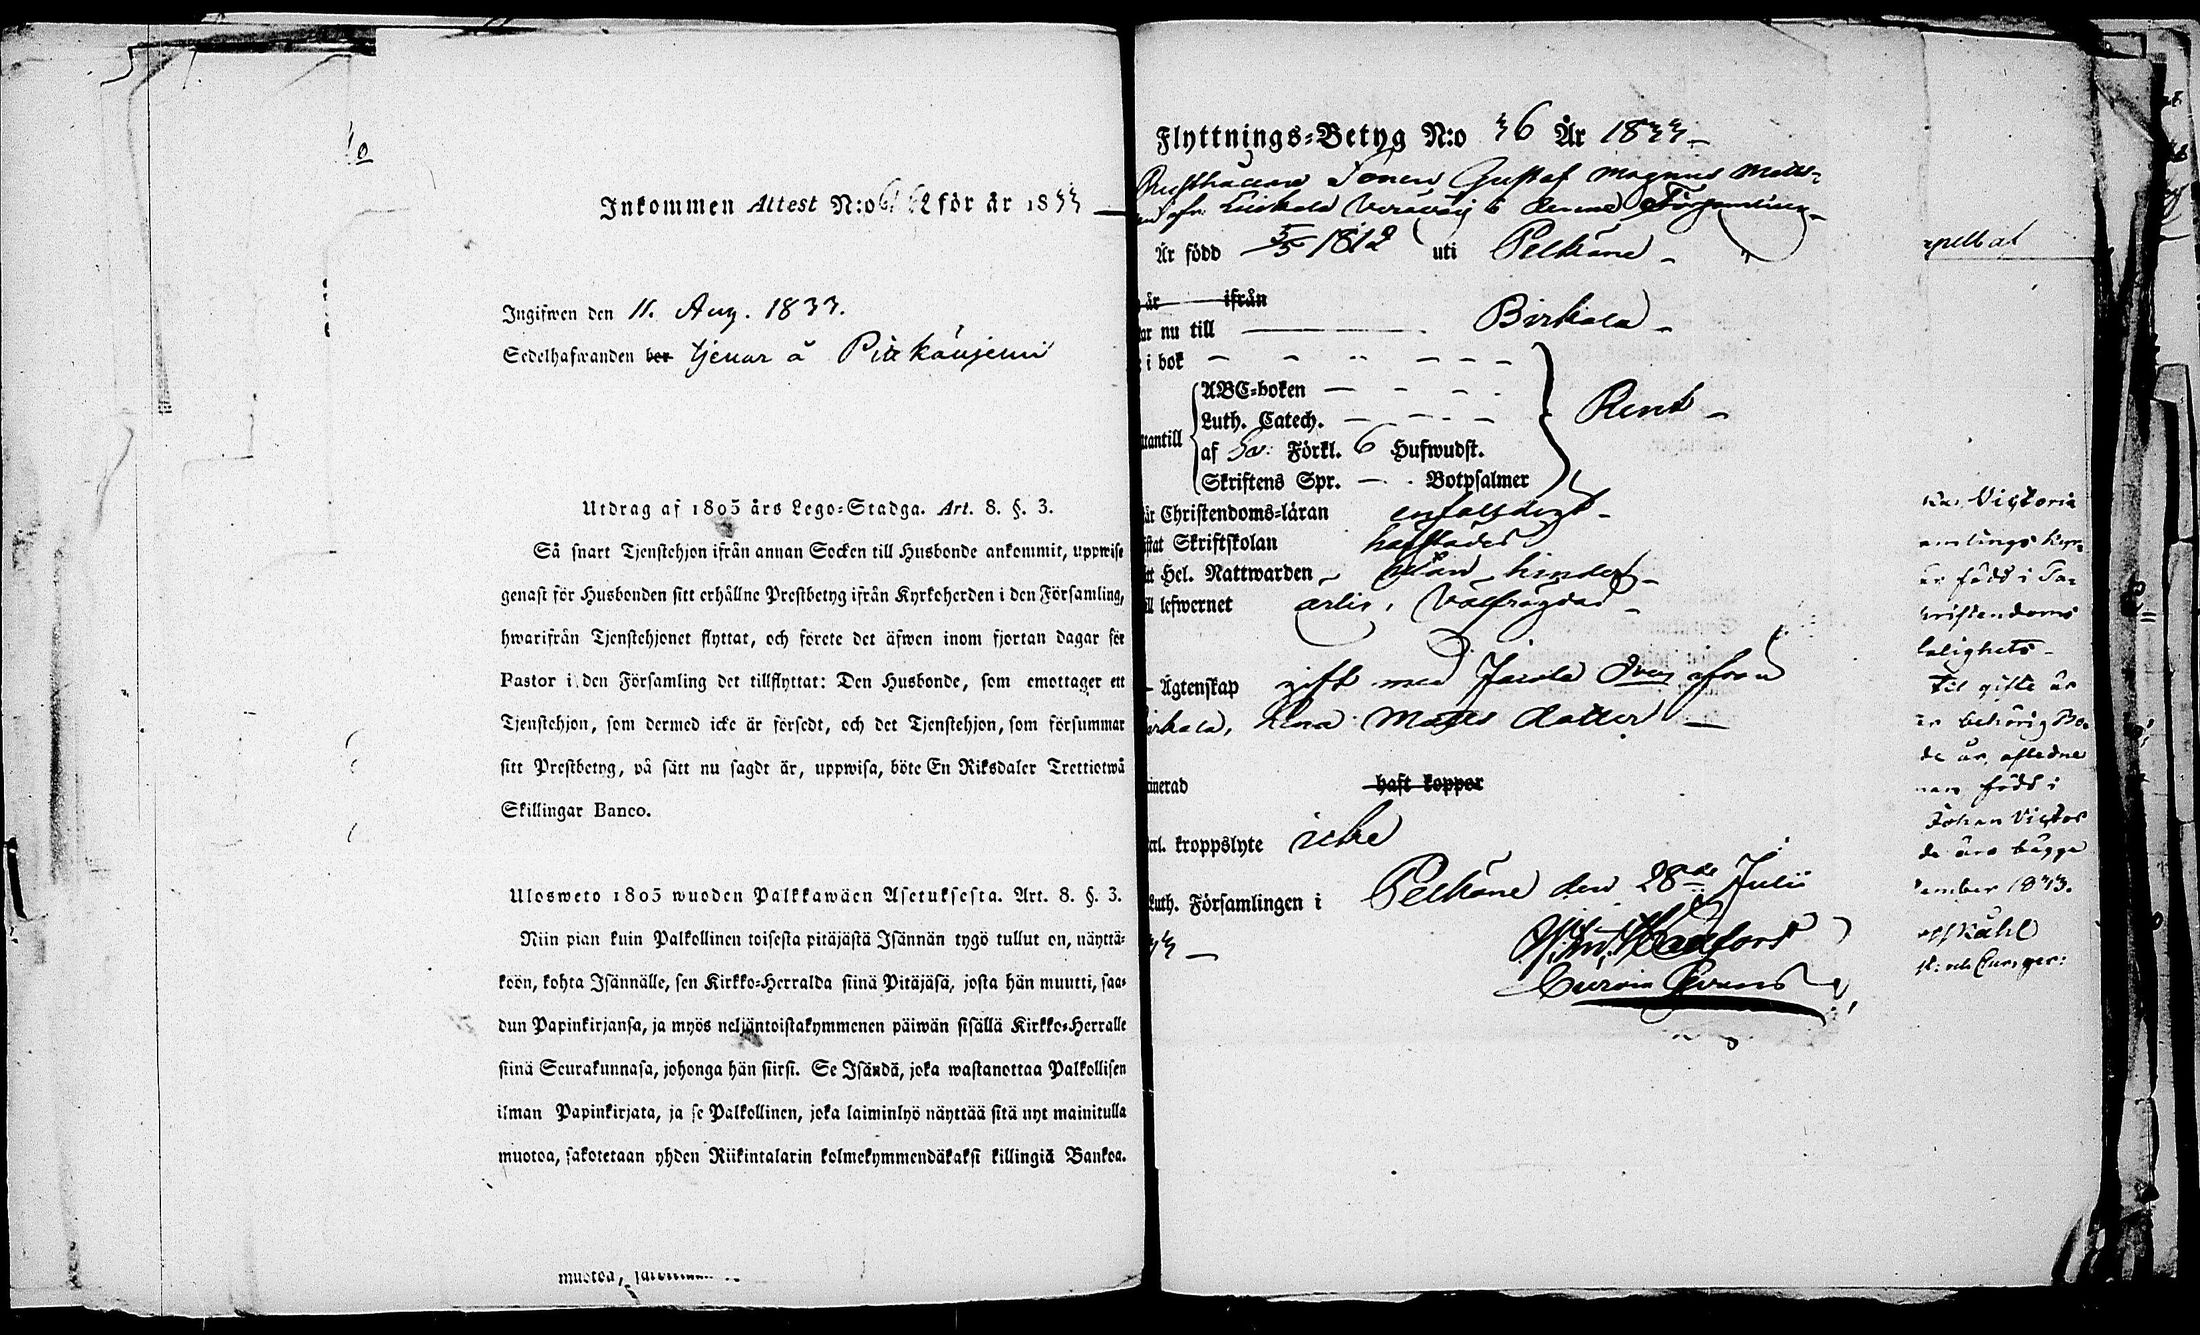 Inkommen Attest N:o 62 för år 1833
Ingifwen den 11. Aug. 1833.
Sedelhafwanden bor tjenar å
Utdrag af 1805 års Lego-Stadga. Art. 8. §. 3.
Så snart Tjenstehjon ifrån annan Socken till Husbonde ankommit, uppwise
genast för Husbonden sitt erhållne Prestbetyg ifrån Kyrkoherden i den Församling,
hwarifrån Tjenstehjonet flyttat, och förete det äfwen inom fjortan dagar för
Pastor i den Församling det tillflyttat: Den Husbonde, som emottager ett
Tjenstehjon, som dermed icke är försedt, och det Tjenstehjon, som försummar
sitt Prestbetyg, på sätt nu sagdt är, uppwisa, böte En Riksdaler Trettiotwå
Skillingar Banco.
Ulosweto 1805 wuoden Palkkawäen Asetuksesta. Art. 8. §. 3.
Niin pian kuin Palkollinen toisesta pitäjästä Isännän tygö tullut on, näyttä-
köön, kohta Isännälle, sen Kirkko-Herralda siinä Pitäjäsä, josta hän muutti, saa-
dun Papinkirjansa, ja myös neljäntoistakymmenen päiwän sisällä Kirkko-Herralle
siinä Seurakunnasa, johonga hän siirsi. Se Isändä, joka wastanottaa Palkollisen
ilman Papinkirjata, ja se Palkollinen, joka laiminlyö näyttää sitä nyt mainitulla
muotoa, sakotetaan yhden Riikintalarin kolmekymmendäkaksi killingiä Bankoa.
muotoa,
Flyttnings-Betyg N:o 36 År 1833
Rusthållare Sonen Gustaf Magnus Matts-
denne Församling
Är född 5/5 1812 uti Pelkäne
är ifrån
ar nu till Birkala
i bok
ABC-boken
Luth. Catech. Rent
ttantill
af Sv. Förkl. 6 Hufwudst.
Skriftens Spr. Botpsalmer
är Christendoms-läran enfaldigt
stat Skriftskolan
tt Hel. Nattwarden utan hinder
ll lefwernet ärlig, välfrägdad
Ägtenskap gift med från
irkala, Lena Matts dotter
cinerad haft koppor
erl. kroppslyte icke
Luth. Församlingen i Pelkäne den 28de Julii
33
pell af
Victoria
amlings Kyr-
är född i Ta-
hristendoms
salighets-
Til gifte är
behörig
de är afledne
född i
Johan Victor
de äro bägge
ember 1833.